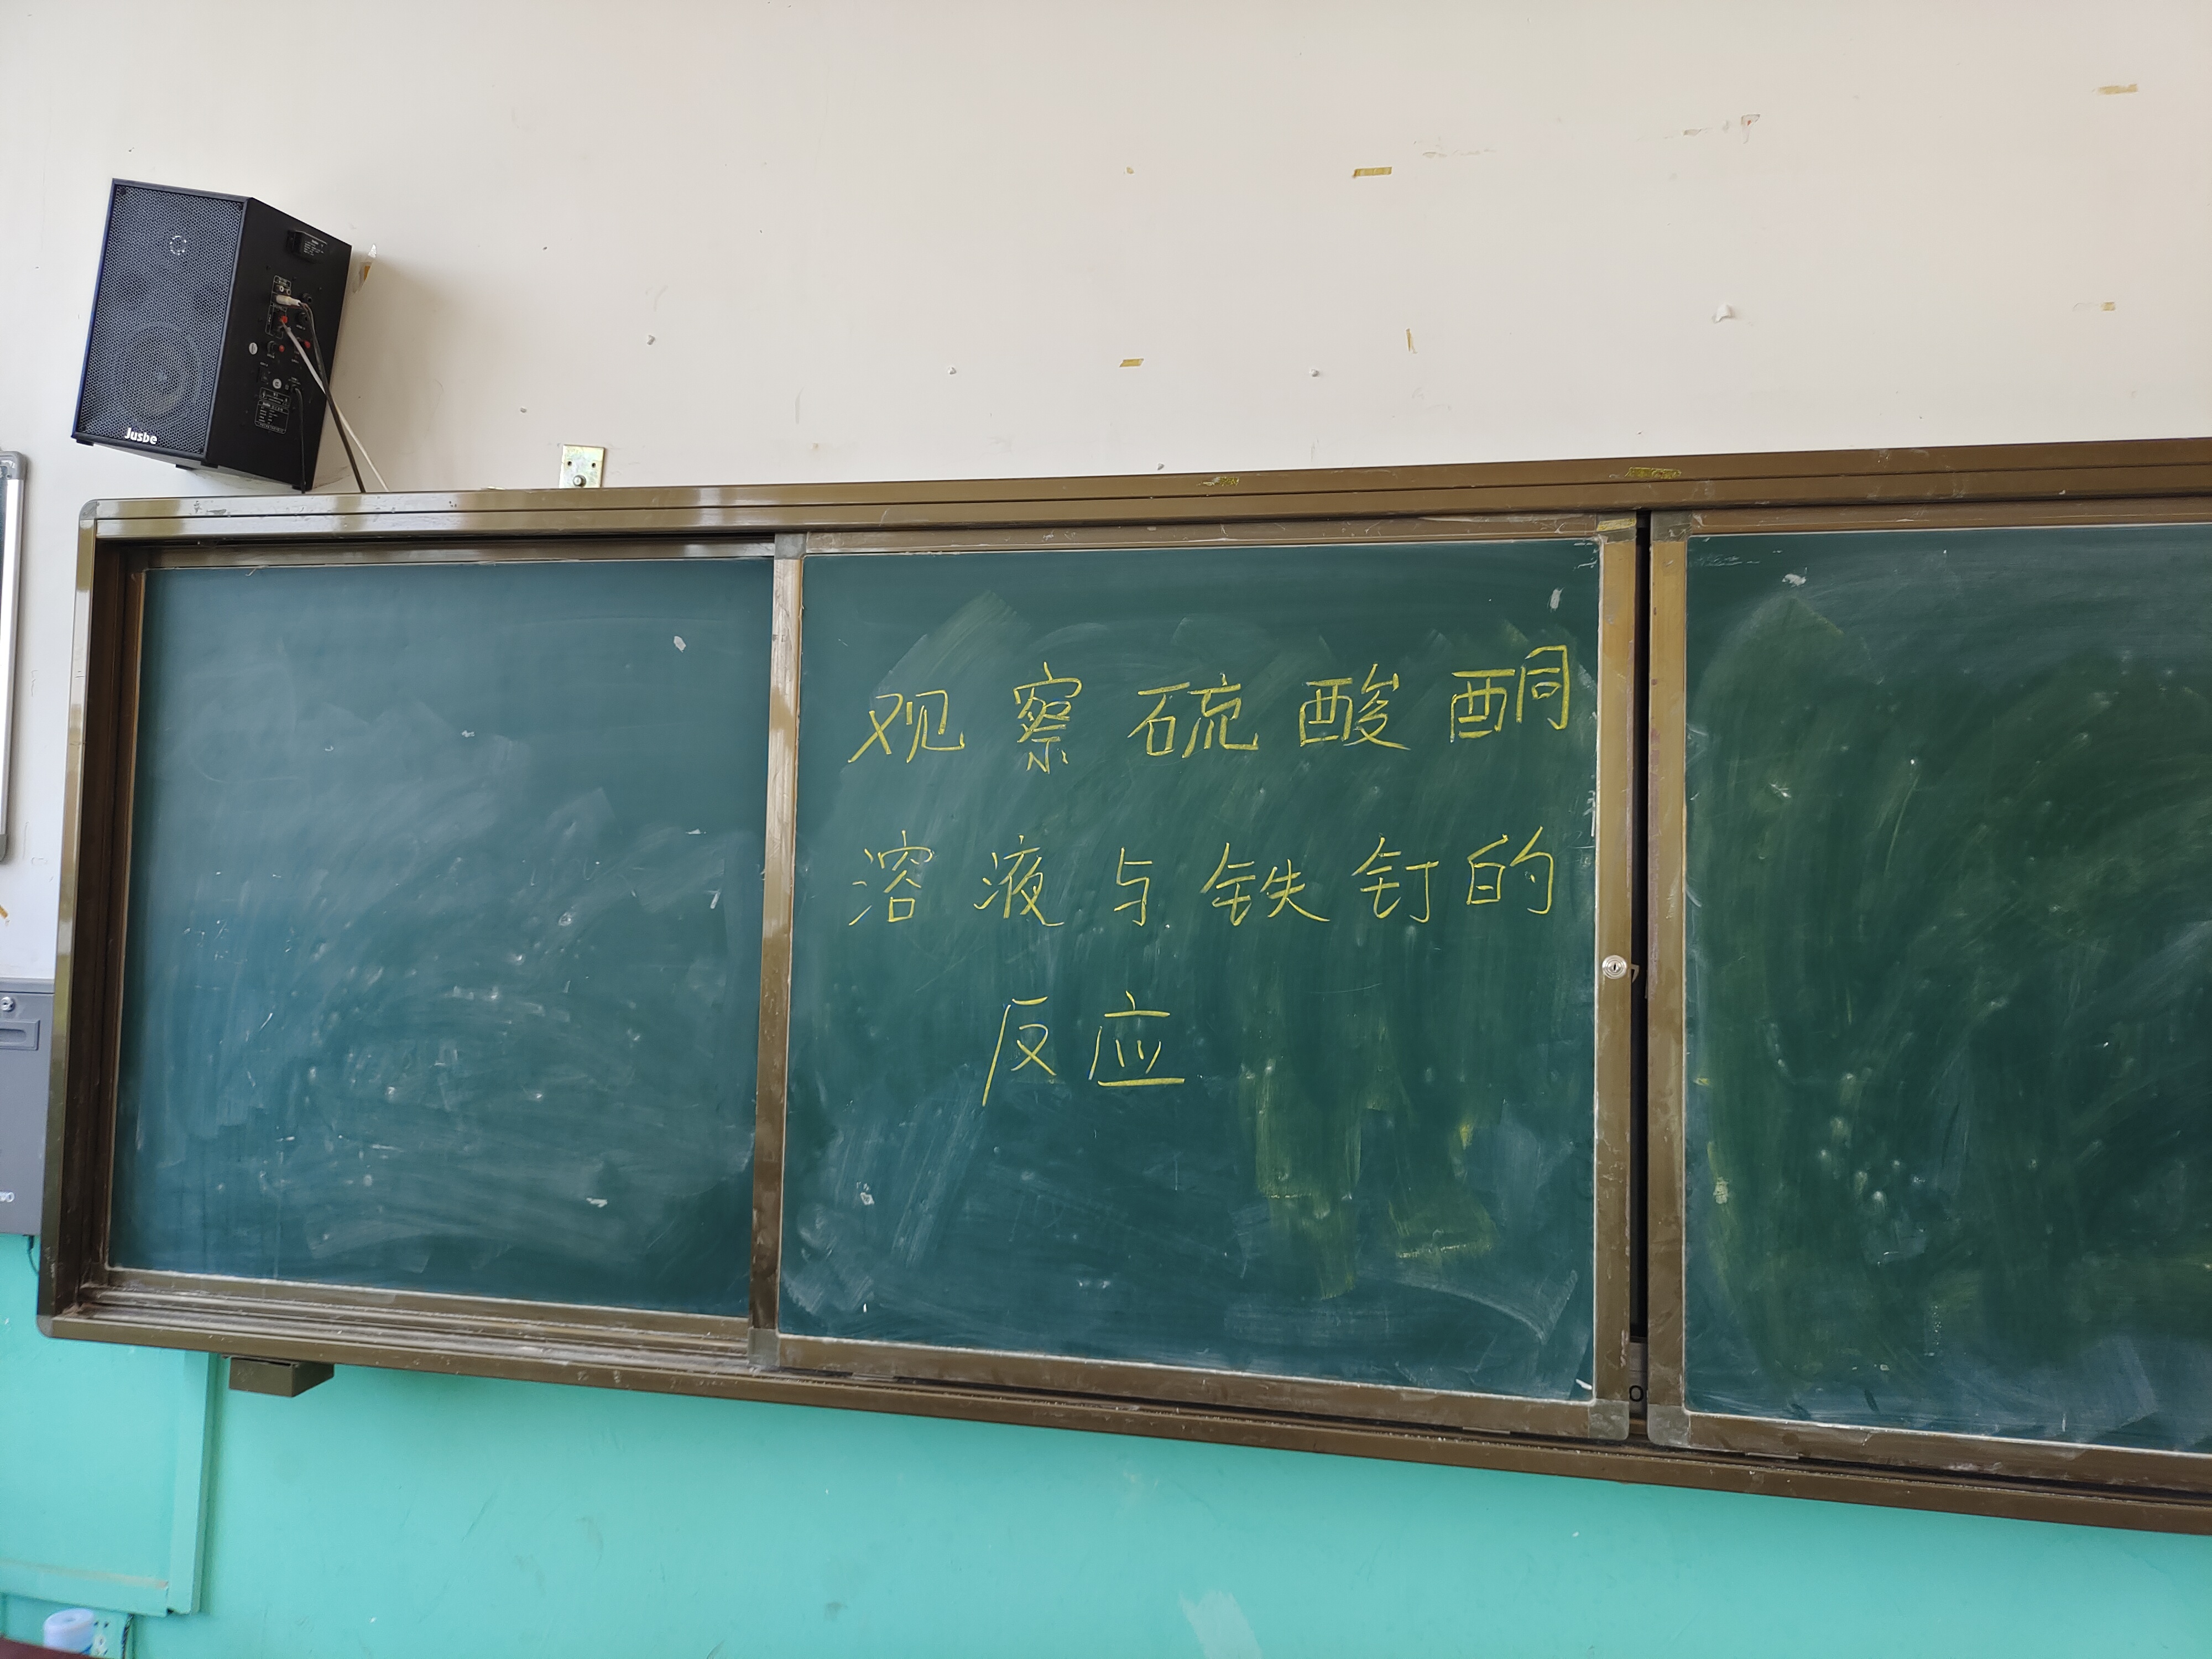 Jusbe
观察硫酸酮
溶液与铁钉的
反应